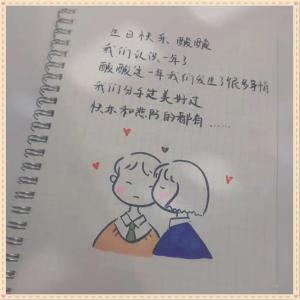 生日快乐、酸酸
我们认识一年了
酸酸这一年我们发生了很多事情
我们分手过美好过
快乐和悲伤的都有……